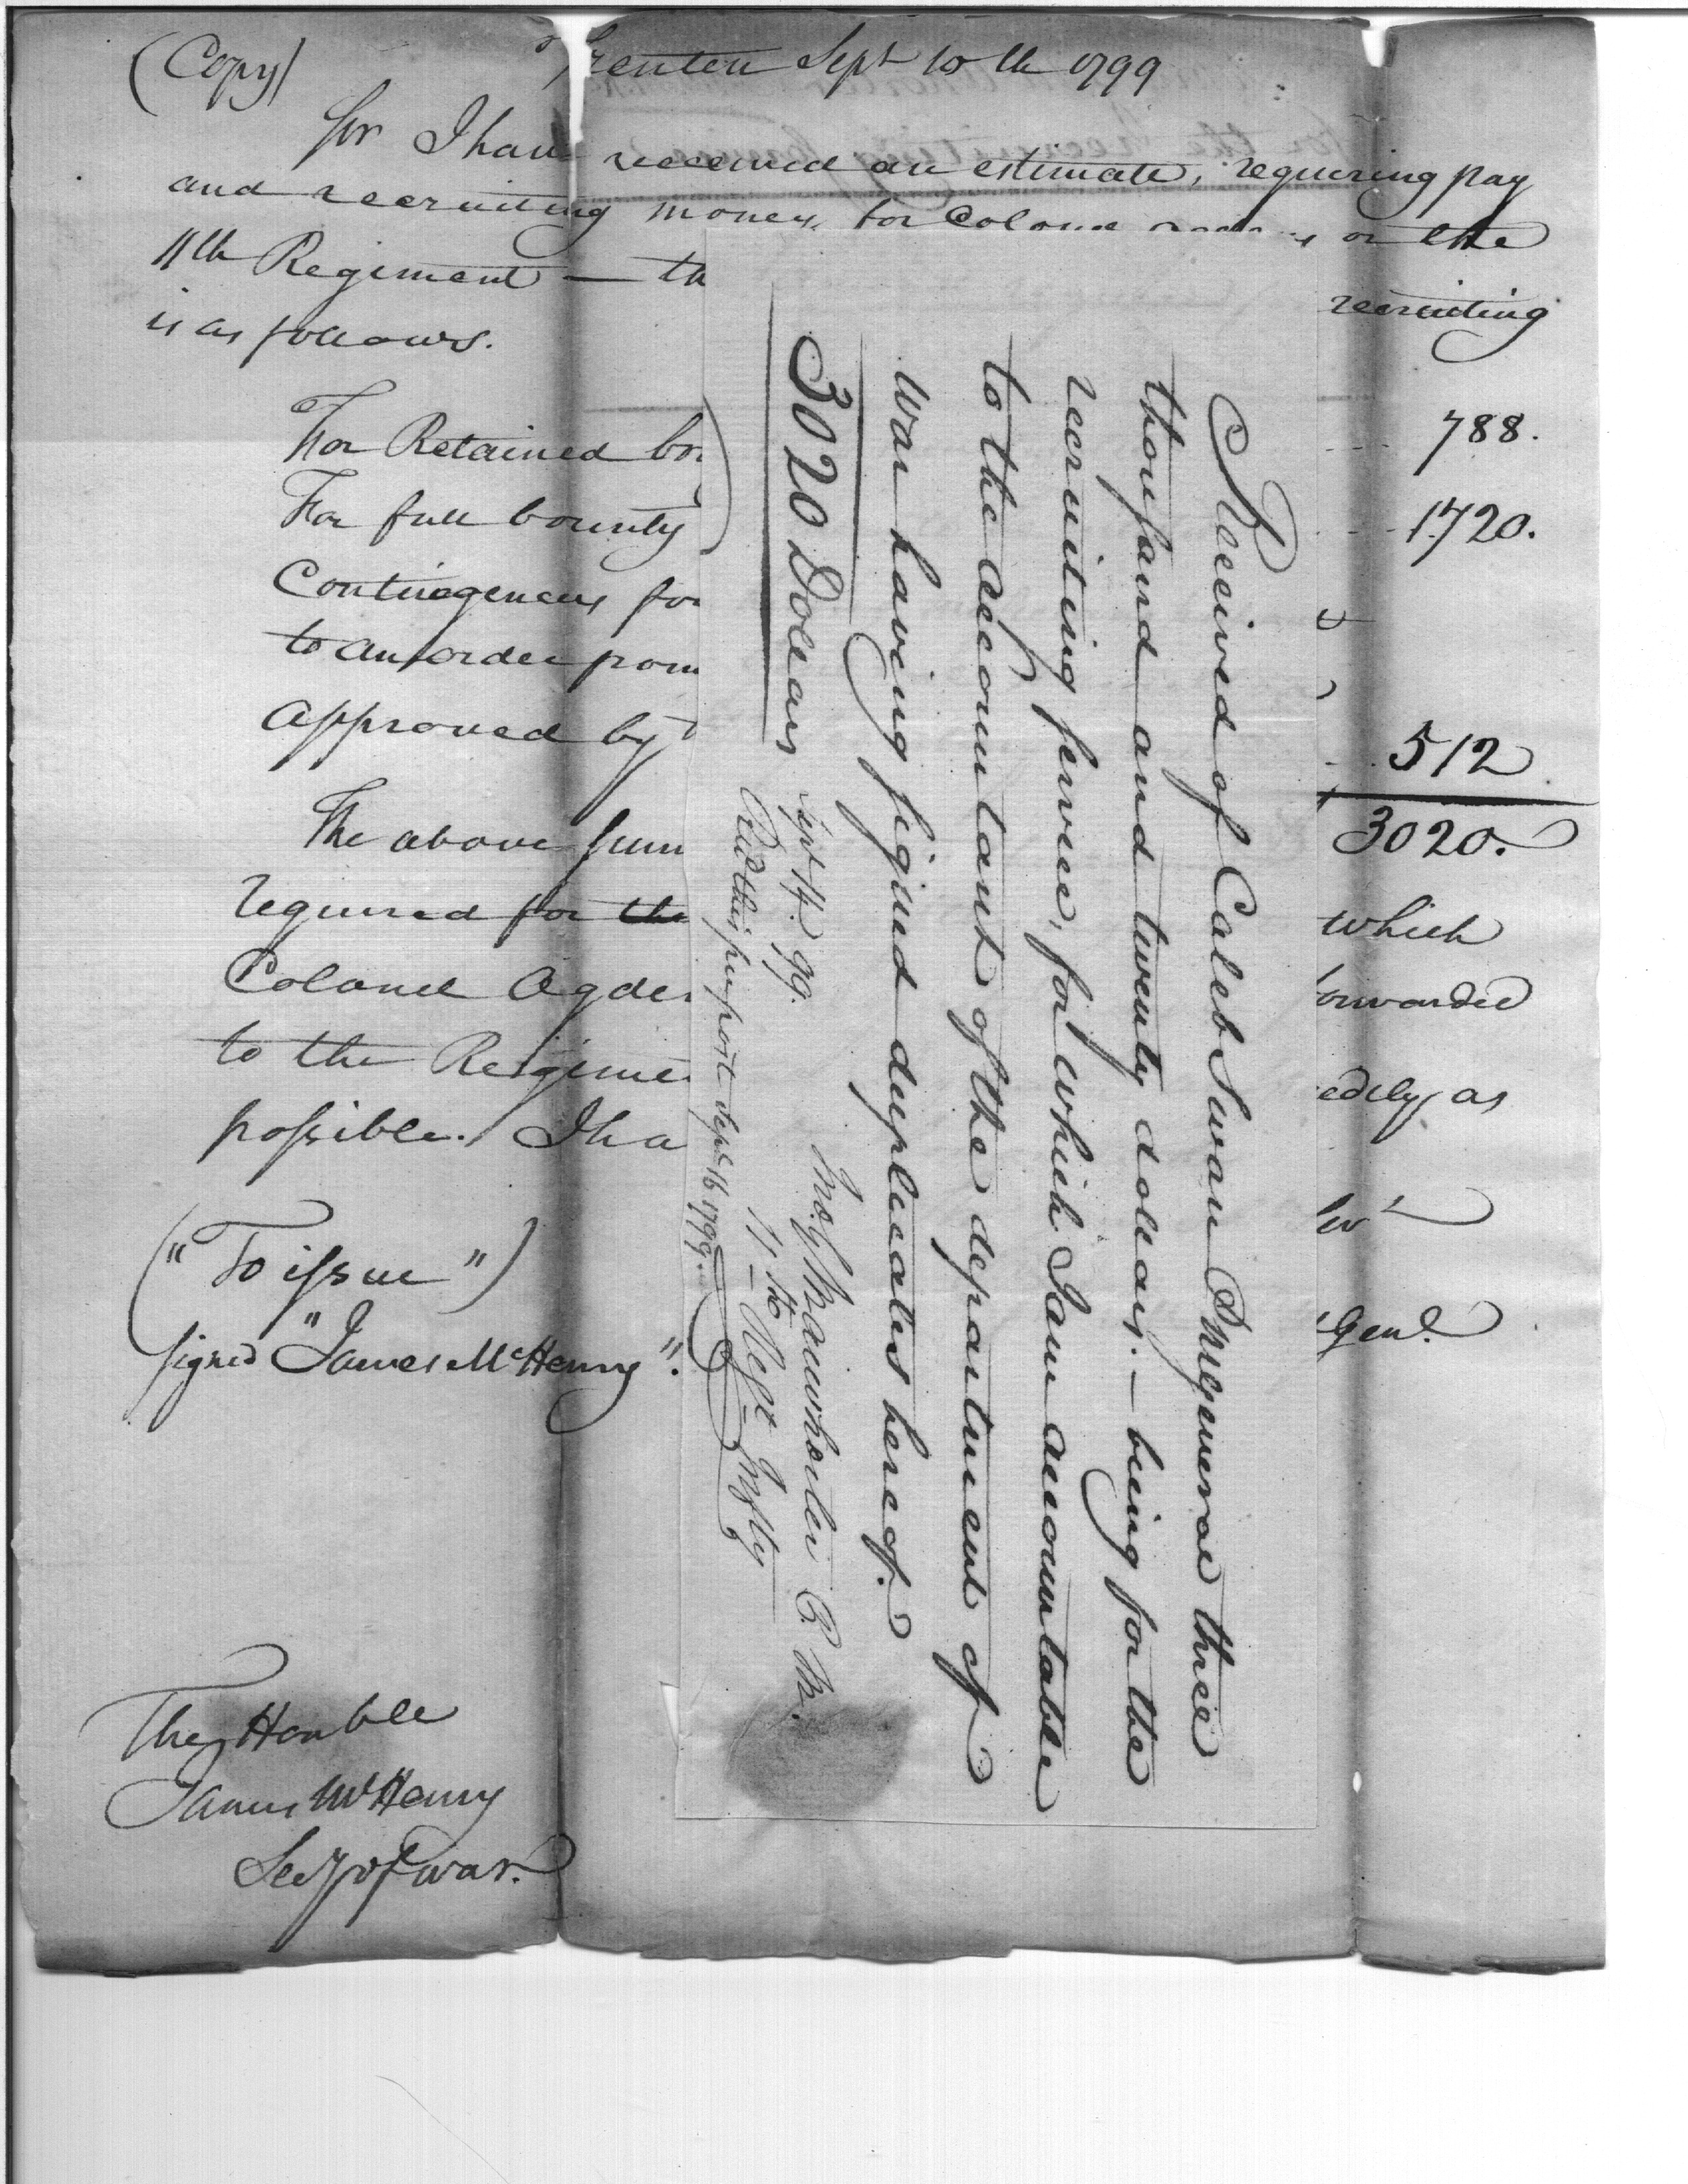 (Copy) Trenton Sept 10th 1799
Sir I have received an estimate, requiring pay
and recruiting money for Colone or the
11th Regiment — th recruiting
is as follows.
For Retained bo 788.
For full bounty 1720.
Contingencies for
to an order from
approved by 512
3020.
The above sum which
required for the
Colonel Ogden orwarded
to the Regime edily as
possible. I ha
("To issue")
signed "James McHenry". Genl.
The Honble
James McHenry
Secy of war.
Received of Caleb Swan PMGeneral three
thousand and twenty dollars. — being for the
recruiting service, for which I am accountable
to the accountant of the department of
War having signed duplicates hereof.
3020 Dollars
Sept 14. 99.
11th Regt Infty
Recd this report Sept 16 1799.